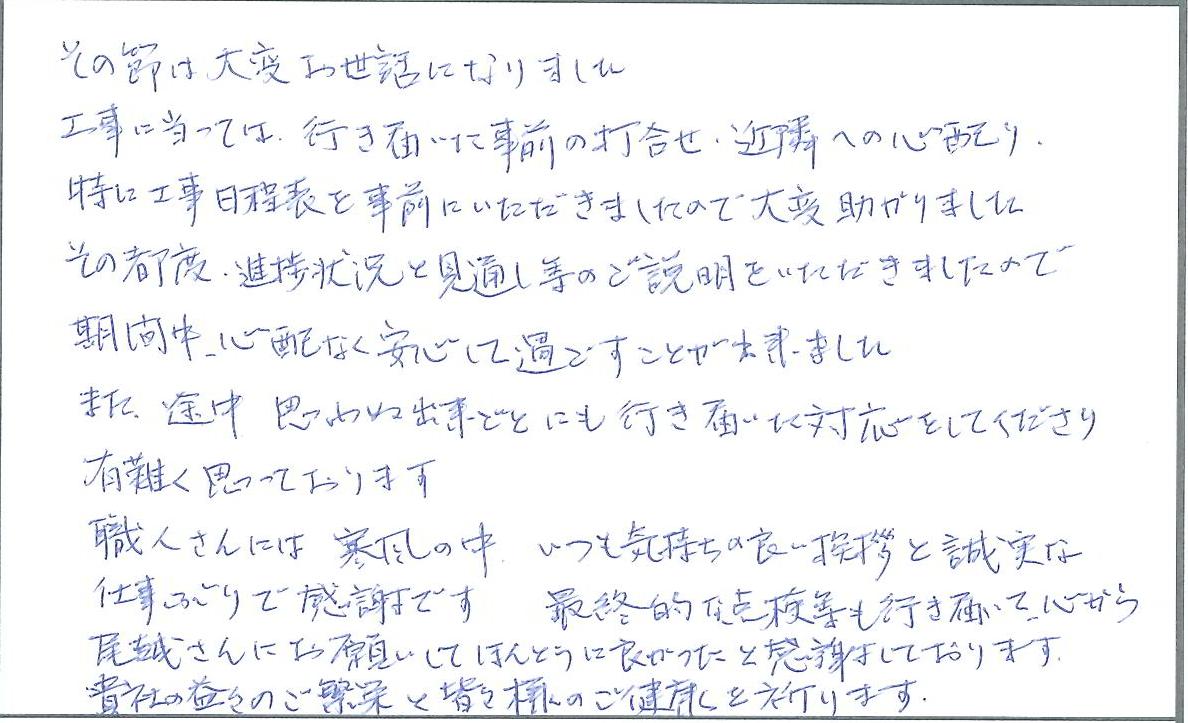 その節は大変お世話になりました
工事に当っては、行き届いた事前の打合せ、近隣への心配り、
特に工事日程表を事前にいただきましたので大変助かりました
その都度、進捗状況と見通し等のご説明をいただきましたので
期間中、心配なく安心して過ごすことが出来ました
また、途中 思わぬ出来ごとにも行き届いた対応をしてくださり
有難く思っております
職人さんには 寒風の中 いつも気持ちの良い挨拶と誠実な
仕事ぶりで感謝です 最終的な点検等も行き届いて、心から
尾越さんにお願いしてほんとうに良かったと感謝しております。
貴社の益々のご繁栄と皆々様のご健康を祈ります。